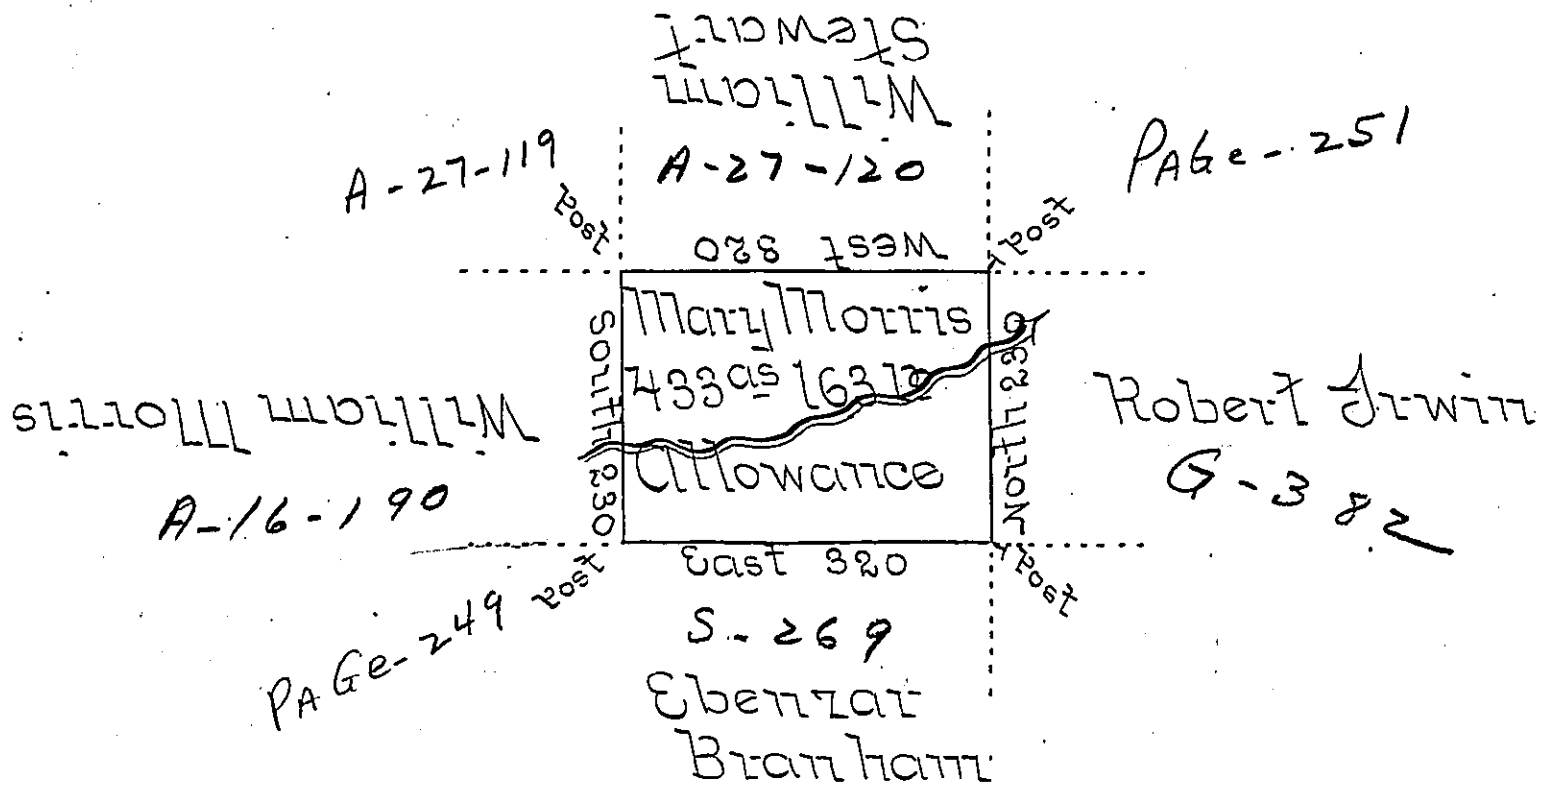 William
Stewart
A-27-119
A-27-120
PAGe-251
Post
West 320
Post
Mary Morris
433 as 163 p
Allowance
South 230
North 230
William Morris
A-16-190
Robert Irwin
G-382
Post
East 320
Post
PAGe-249
S-269
Ebenzar
Branham